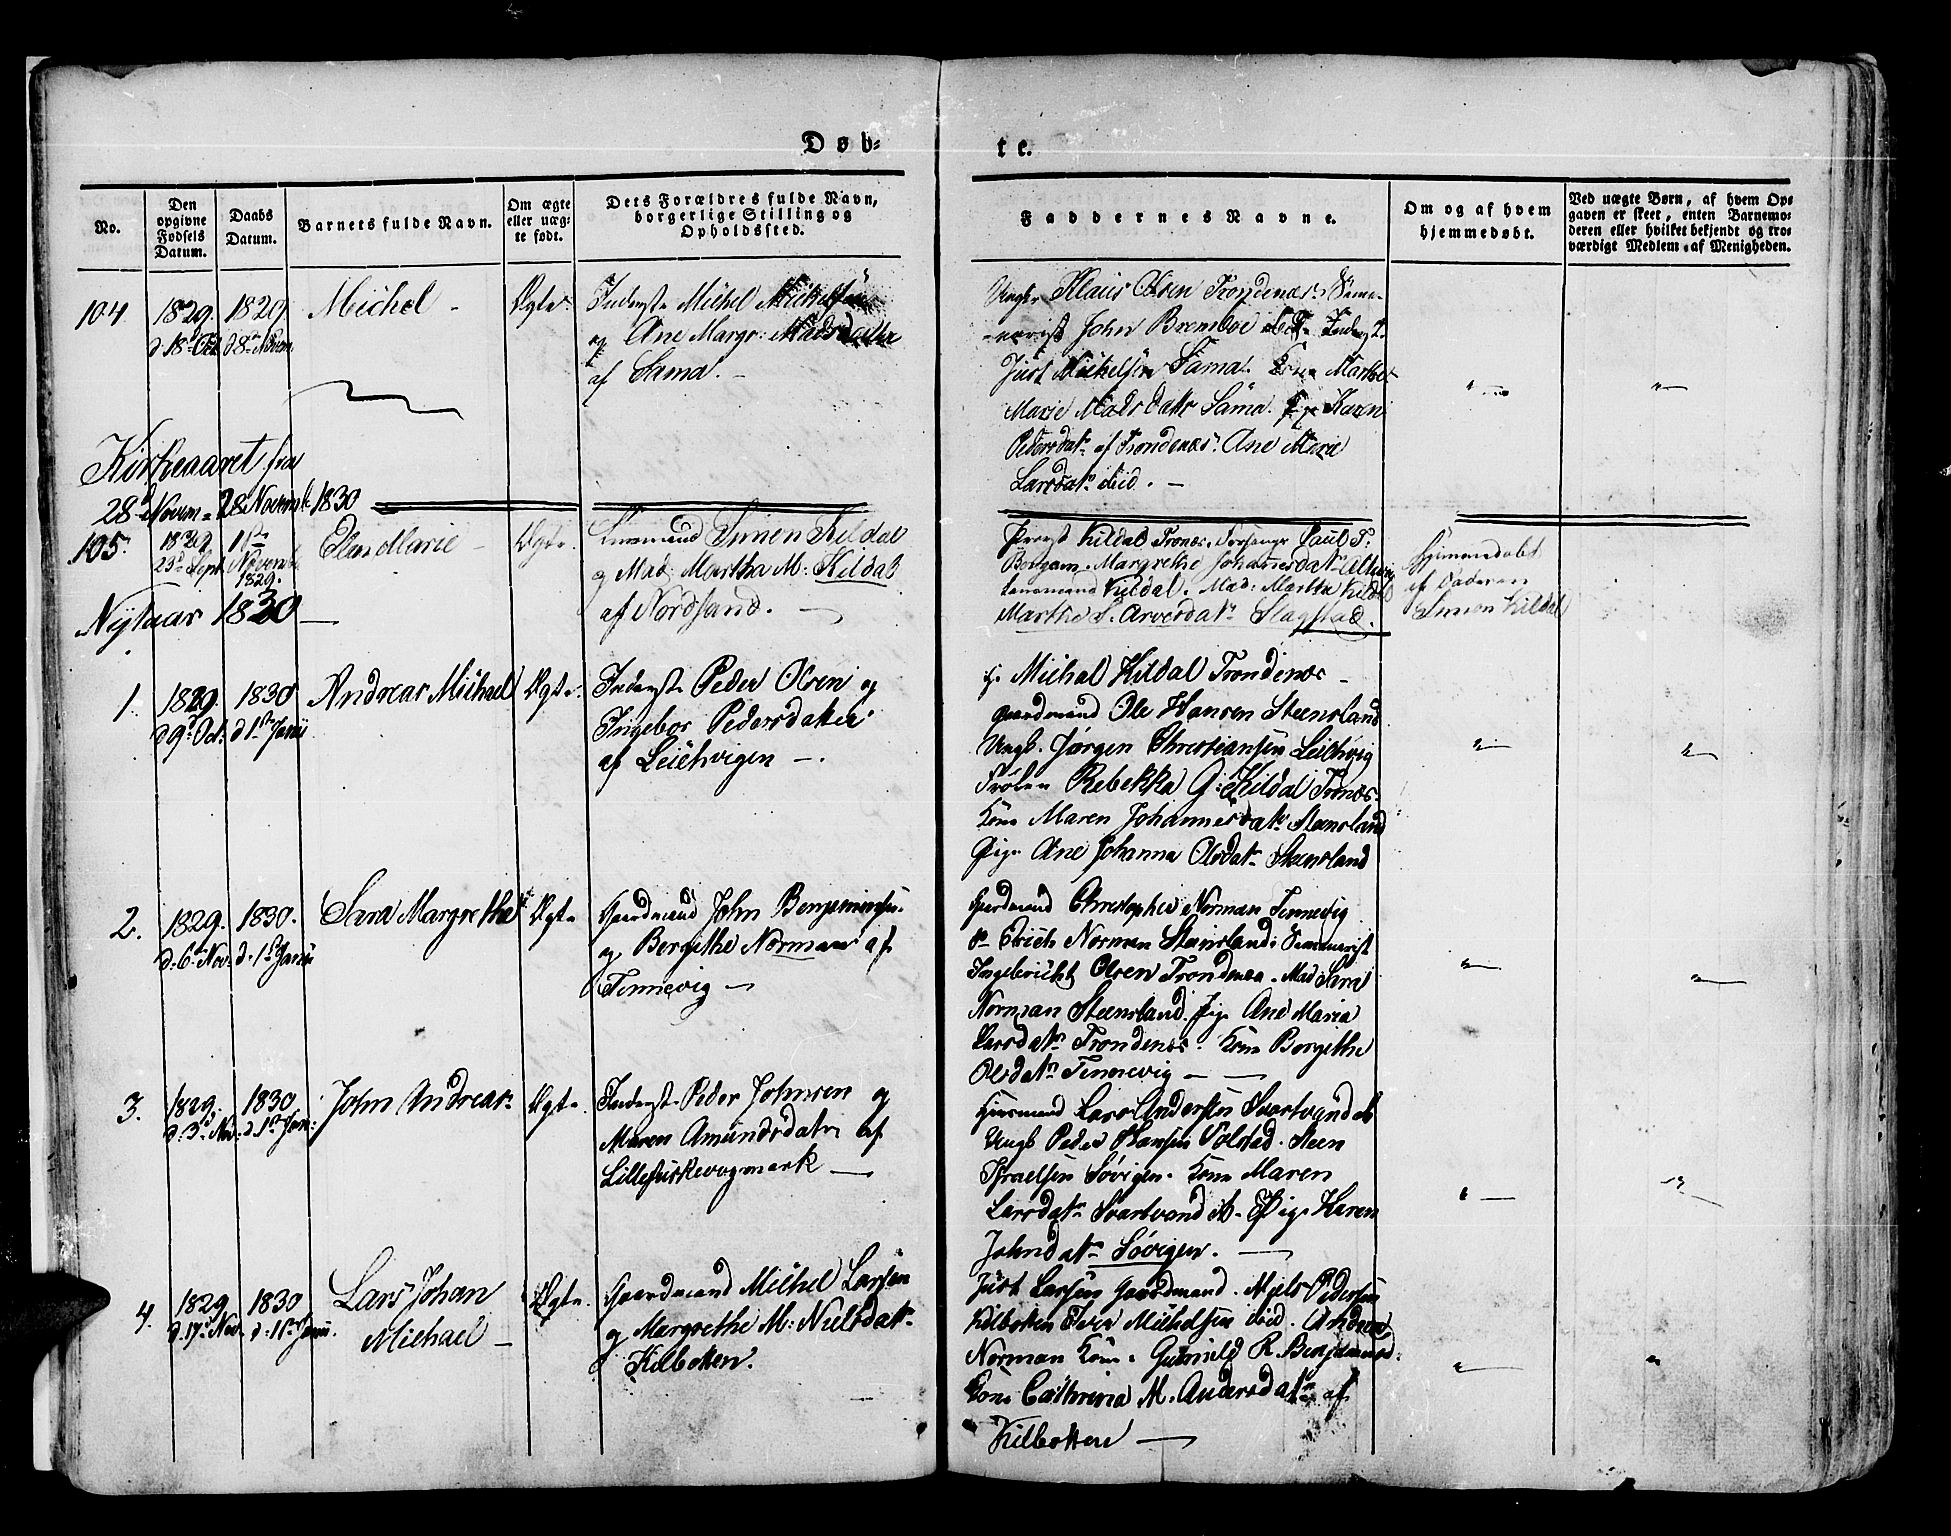 Døb-
te.
No.
Den opgivne Fødsels Datum.
Daabs Datum.
Barnets fulde Navn.
Om ægte eller uægte født.
Dets Forældres fulde Navn, borgerlige Stilling og Opholdssted.
Faddernes Navne.
Om og af hvem hjemmedøbt.
Ved uægte Børn, af hvem Opgaven er skeet, enten Barnemoderen eller hvilket bekjendt og troværdigt Medlem af Menigheden.
104
1829.
d 18de Oct
1829.
d 8de Novem
Michel -
Ægte
Inderst Michel Mickelsen
og Ane Margr: Madsdatter
af Sama. -
Ungk. Klaus Olsen Trondenæs.
John Bremboe
Just Michelsen Sama. Kone Marthe
Marie Madsdatr Sama. Karen
Pedersdatr af Trondenæs. Ane Maria
Larsdatr ibid. -
Kirkeaaret fra
28 Novem - 28 Novemb 1830
105.
1829
23de Sept
1ste
Novemb
1829.
Marie -
Ægte.
Simen Kildal
og Mad. Martha M: Kildal
af Nordsand. -
Provst Kildal Tronæs. Forsanger Paul
Margrethe Johannesdatr
Kildal. Mad: Martha Kildal
Marthe S. Slagstad.
Hjemmedøbt
af Faderen
Simon Kildal
Nytaar 1830 -
1.
1829.
d 9de Oct.
1830
d 1ste Janii
Andreas Michael
Ægte.
Inderst Peder Olsen og
Ingebor Pedersdatter
af Leichvigen -.
Michal Kildal Trondenæs -
Gaardmand Ole Hansen Steensland
Ungk. Jørgen Christiansen Leichvig
Frøken Rebekka G: Kildal Tronæs.
Kone Maren Johannesdatr Steensland
Pige Ane Johanna Olsdatr Steensland
2.
1829.
d. 6te Nov.
1830.
d. 1ste Janii
Sara Margrethe
Ægte
Gaardmand John Benjaminsen
og Bergithe Norman af
Tennevig -
Gaardmand Christopher Norman Tennevig
Erich Norman Steensland. Seminarist
Ingebricht Olsen Trondenæs. Mad Sara
Norman Steensland. Pige Ane Maria
Larsdatr Trondenæs. Kone Bergithe
Olsdatr Tennevig -
3.
1829.
d. 3de Nov.
1830
d 1ste Jan:
John Andreas
Ægte.
Inderst Peder Johnsen og
Maren Amundsdatr af
Lillefiskevogmark -
Huusmand Lars Andersen Svartvandet
Ungk Peder Hansen Steen
Israelsen Sørvigen. Kone Maren
Larsdatr Svartvandet. Pige Karen
Johnsdatr Sørvigen. -
4.
1829
d. 17de Nov.
1830
d. 1ste Janii.
Lars Johan
Michael -
Ægte.
Gaardmand Michel Larsen
og Margrethe M: Nielsdatr
Kilbotten.
Just Larsen Gaardmand. Niels Pedersen
Kilbotten Iver Michelsen ibid. Andreas
Norman Kone Gunnild R. Benjamind.
Kone Cathrina M. Andersdatr af
Kilbotten -